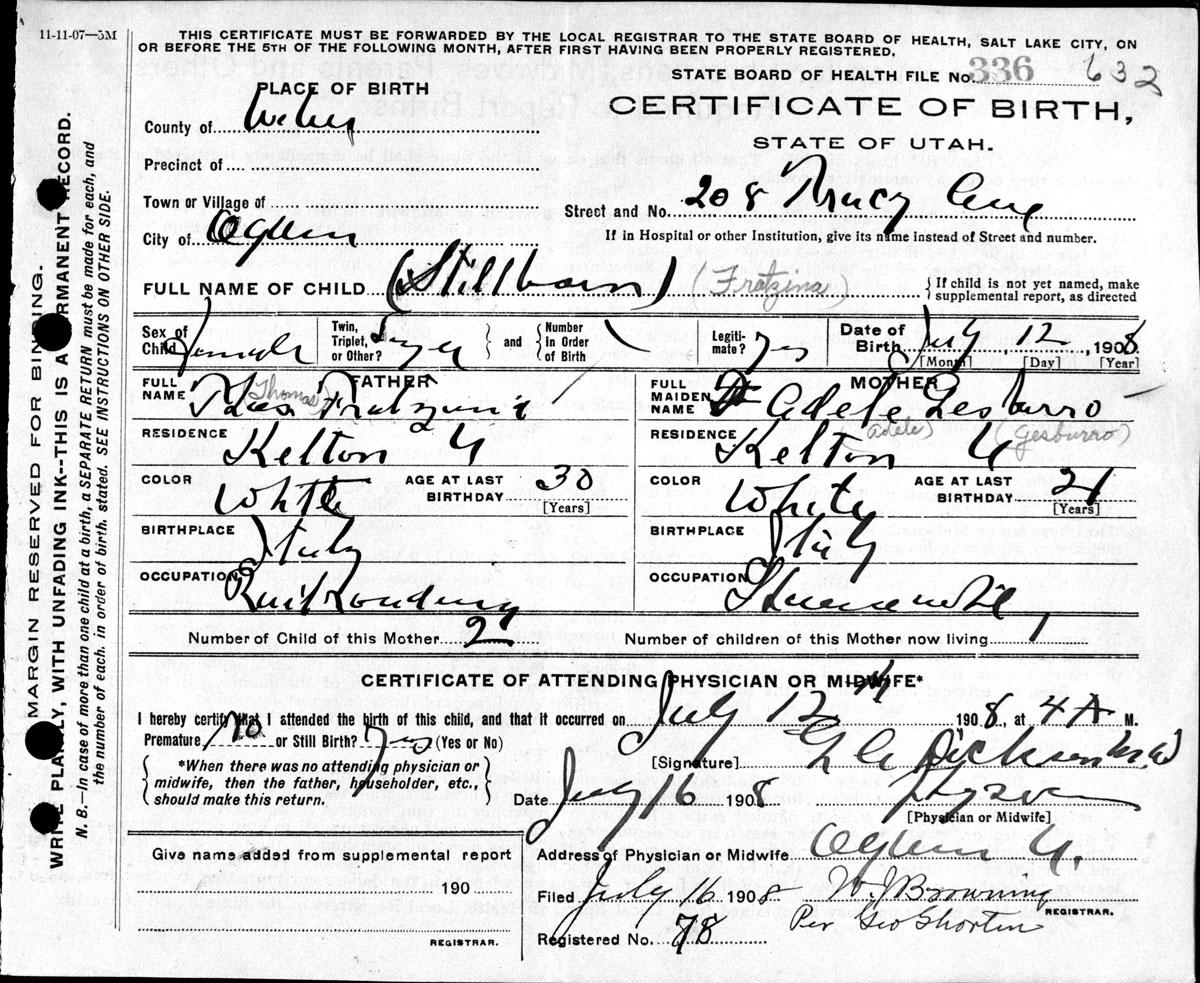 11-11-07—5M
THIS CERTIFICATE MUST BE FORWARDED BY THE LOCAL REGISTRAR TO THE STATE BOARD OF HEALTH, SALT LAKE CITY, ON
OR BEFORE THE 5TH OF THE FOLLOWING MONTH, AFTER FIRST HAVING BEEN PROPERLY REGISTERED.
STATE BOARD OF HEALTH FILE No. 336 632
PLACE OF BIRTH
CERTIFICATE OF BIRTH,
STATE OF UTAH.
County of Weber
Precinct of
Town or Village of
City of Ogden
Street and No. 208 Ave
If in Hospital or other Institution, give its name instead of Street and number.
FULL NAME OF CHILD (Stillborn) (Fratzina)
If child is not yet named, make
supplemental report, as directed
Sex of Child Female
Twin, Triplet, or Other?
and
Number in Order of Birth
Legiti-mate? yes
Date of Birth July 12, 1908.
[Month] [Day] [Year]
FATHER
FULL NAME Thos (Thomas)
RESIDENCE Kelton U
COLOR White
AGE AT LAST BIRTHDAY 30
[Years]
BIRTHPLACE Italy
OCCUPATION Railroading
MOTHER
FULL MAIDEN NAME Adele Gesburro
(adele) (Gesburro)
RESIDENCE Kelton U
COLOR White
AGE AT LAST BIRTHDAY 21
[Years]
BIRTHPLACE Italy
OCCUPATION Housewife
Number of Child of this Mother 2
Number of children of this Mother now living 1
CERTIFICATE OF ATTENDING PHYSICIAN OR MIDWIFE*
I hereby certify that I attended the birth of this child, and that it occurred on July 12th 1908, at 4 A M.
Premature No or Still Birth? Yes (Yes or No)
*When there was no attending physician or
midwife, then the father, householder, etc.,
should make this return.
[Signature] Dickson M.D
Date July 16 1908
[Physician or Midwife]
Address of Physician or Midwife Ogden U.
Give name added from supplemental report
190
REGISTRAR.
Filed July 16 1908 W. J. Browning
REGISTRAR.
Per Geo Shorten
Registered No. 78
MARGIN RESERVED FOR BINDING.
WRITE PLAINLY, WITH UNFADING INK--THIS IS A PERMANENT RECORD.
N. B.—In case of more than one child at a birth, a SEPARATE RETURN must be made for each, and
the number of each, in order of birth, stated. SEE INSTRUCTIONS ON OTHER SIDE.